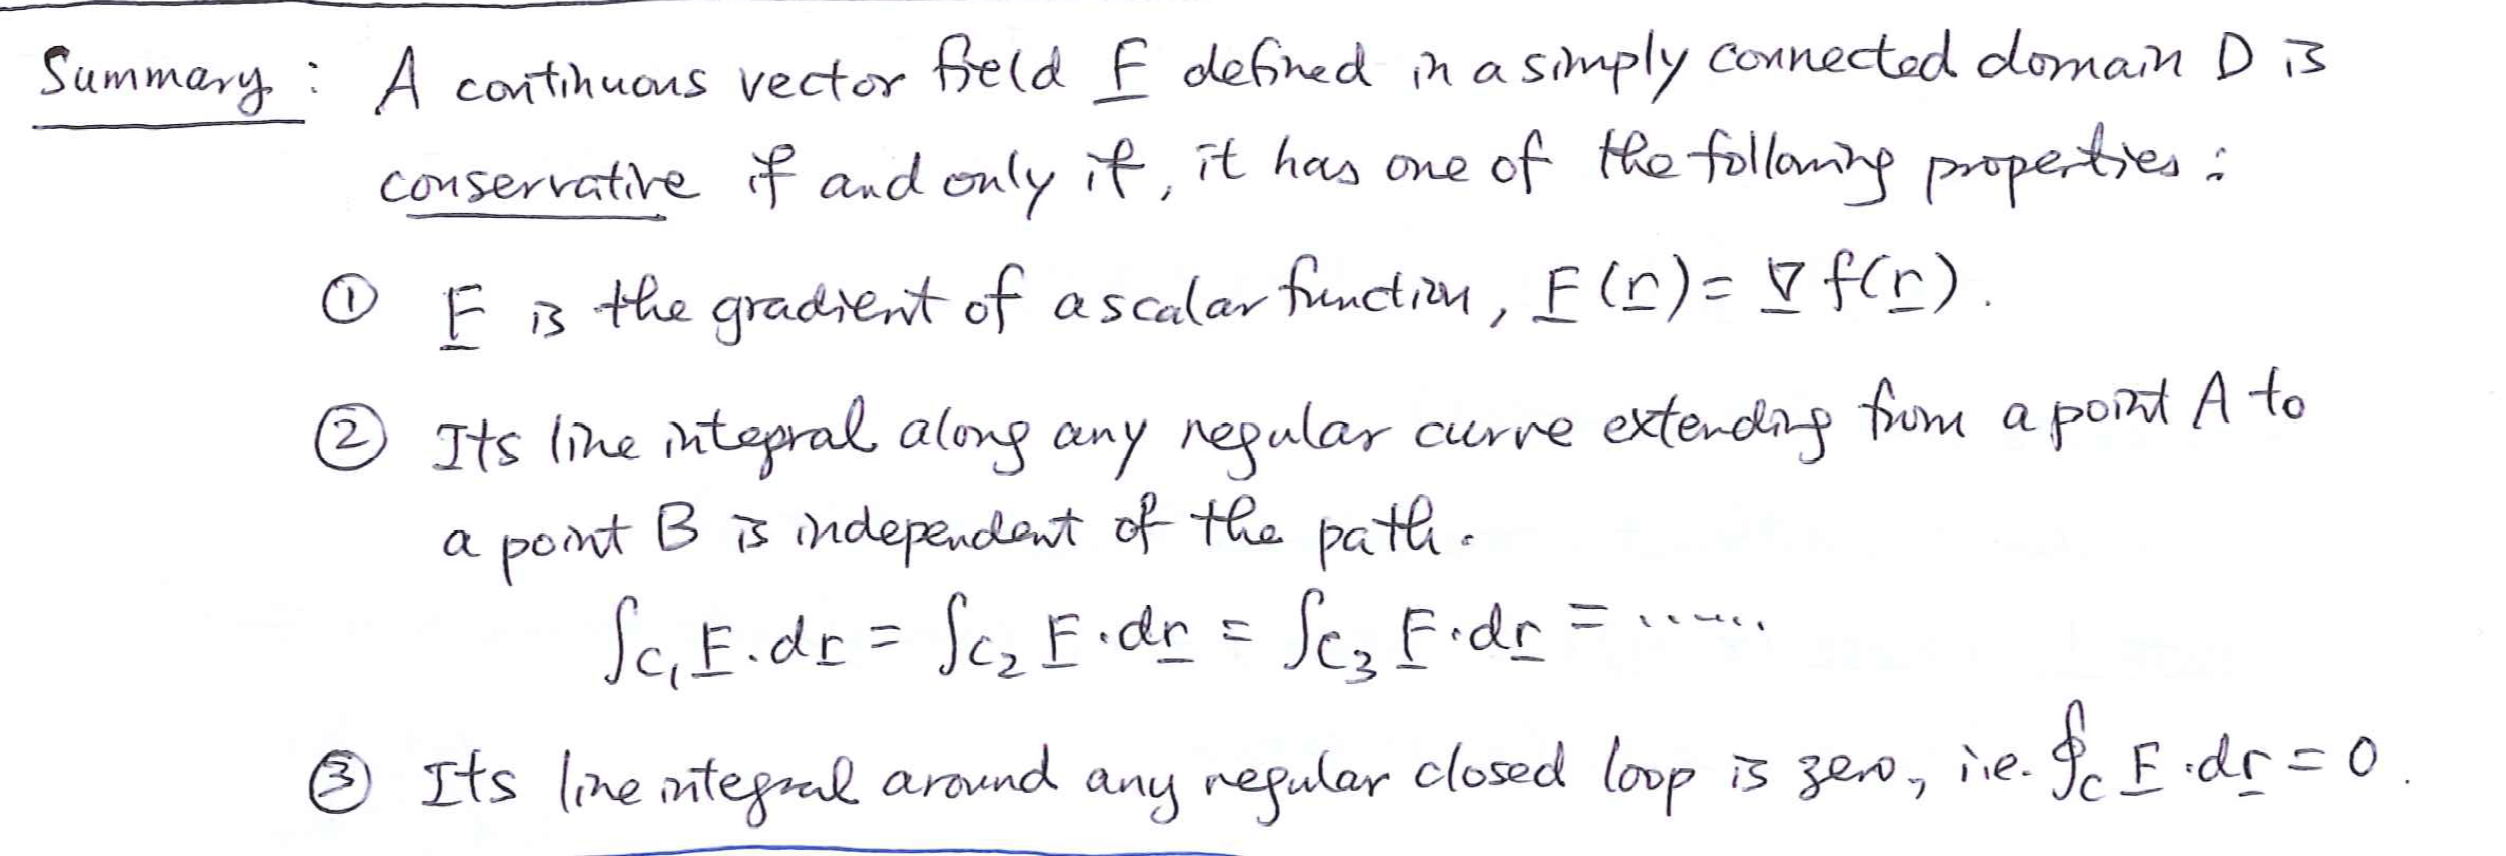 Summary : A continuous vector field F defined in a simply connected domain D is
conservative if and only if, it has one of the following properties :
① F is the gradient of a scalar function, F(r) = ∇f(r).
② Its line integral along any regular curve extending from a point A to
a point B is independent of the path.
∫C₁ F·dr = ∫C₂ F·dr = ∫C₃ F·dr = ......
③ Its line integral around any regular closed loop is zero, i.e. ∮C F·dr = 0.